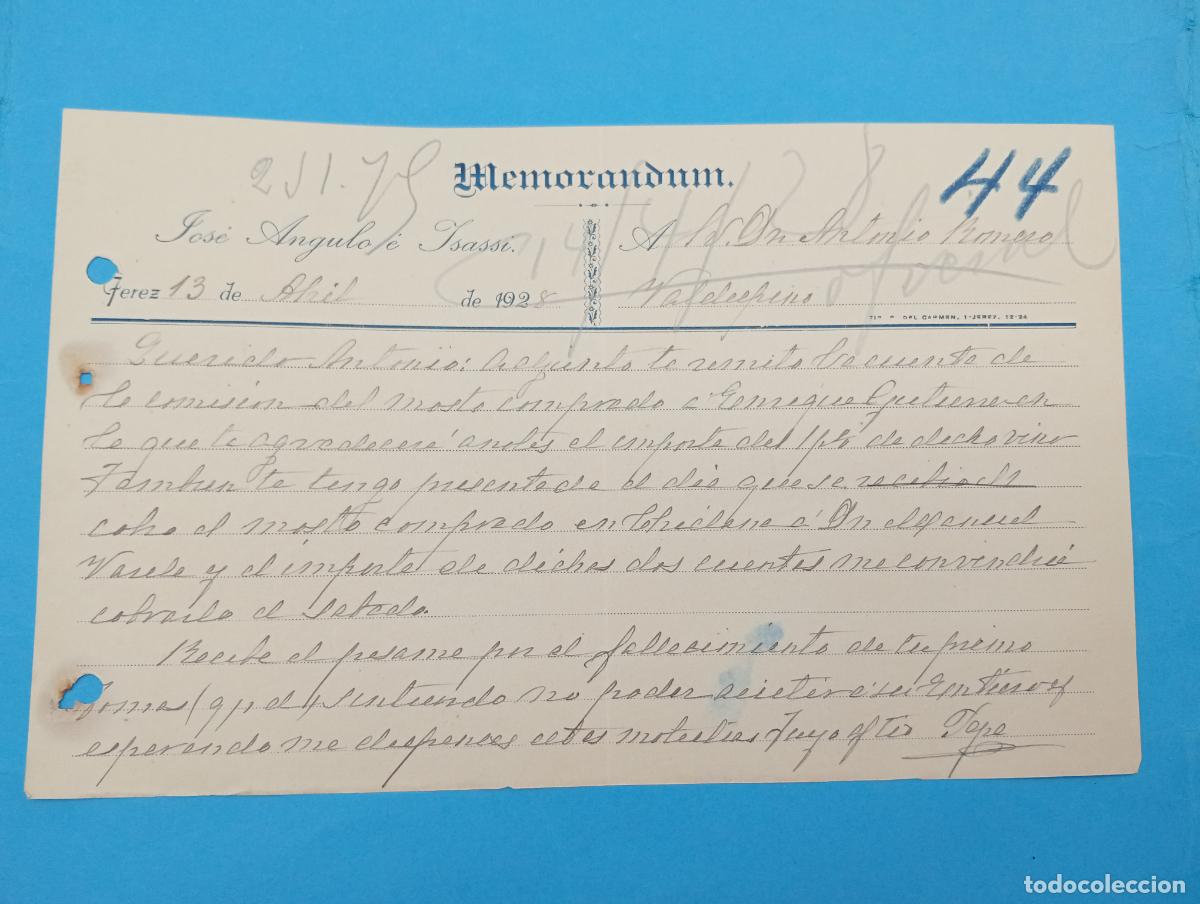 251.75
Memorandum.
44
José Angulo é Isassi.
A Sr. Dn Antonio Romero
Jerez 13 de Abril de 1928
Valdespino
TIP. DEL CARMEN, 1-JEREZ, 12-24
Querido Antonio: adjunto te remito la cuenta de
la comision del mosto comprado a Enrique Gutierrez en
la que te agradeceré anotes el importe del 1 p% de dicho vino
Tambien te tengo presentada el dia que se recibio el
cobro el mosto comprado en Chiclana a Dn Manuel
Varela y el importe de dichas dos cuentas me convendria
cobrarlo el Sabado.
Recibe el pesame por el fallecimiento de tu primo
Tomas (q p d) sintiendo no poder asistir a su Entierro y
esperando me dispenses estas molestias tuyo afto Pepe
todocoleccion